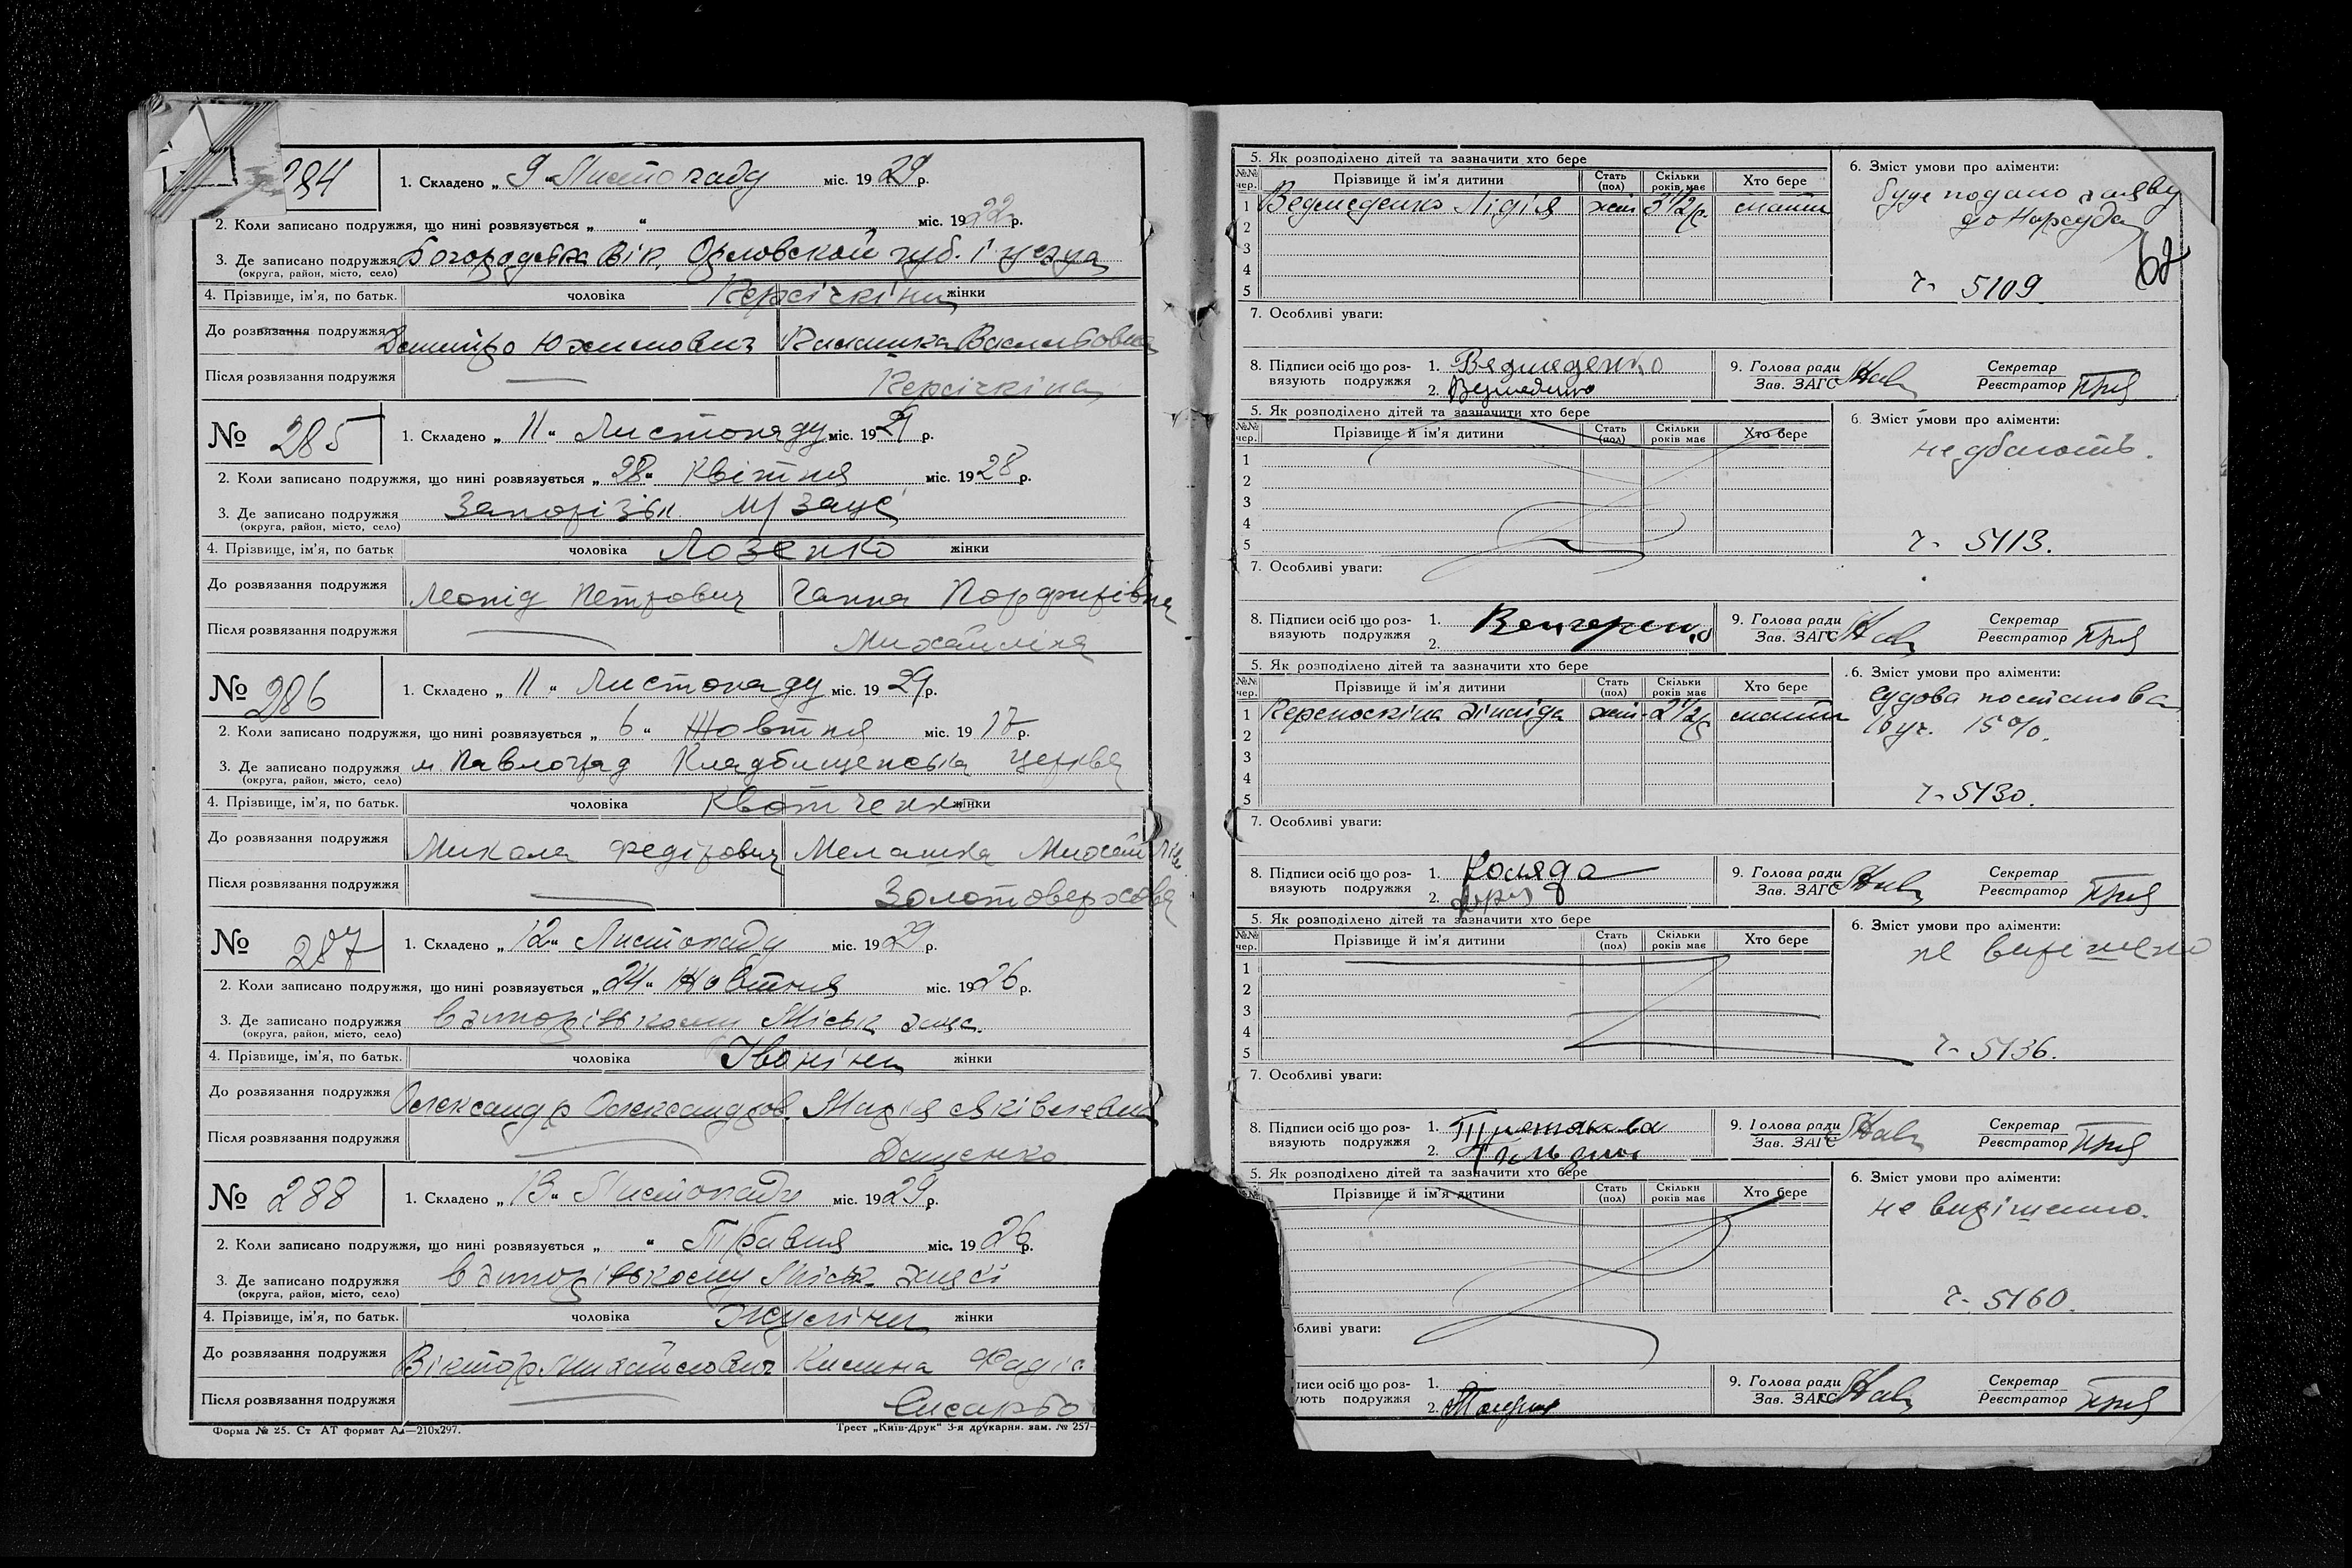 284
1. Складено „ 9 “ Листопаду міс. 1929 р.
2. Коли записано подружжя, що нині розвязується „ “ міс. 1922 р.
3. Де записано подружжя Орловской губ. і уезда
(округа, район, місто, село)
4. Прізвище, ім'я, по батьк. чоловіка жінки
До розвязання подружжя Дмитро Юхимович Васильовна
Після розвязання подружжя —
№ 285
1. Складено „ 11 “ Листопаду міс. 1929 р.
2. Коли записано подружжя, що нині розвязується „ 28 “ Квітня міс. 1928 р.
3. Де записано подружжя Запорізьк. м/загс
(округа, район, місто, село)
4. Прізвище, ім'я, по батьк чоловіка Лозенко жінки
До розвязання подружжя Леонід Петрович Ганна Порфирівна
Після розвязання подружжя — Михайліна
№ 286
1. Складено „ 11 “ Листопаду міс. 1929 р.
2. Коли записано подружжя, що нині розвязується „ 6 “ Жовтня міс. 1917 р.
3. Де записано подружжя м. Павлоград Кладбищенська церква
(округа, район, місто, село)
4. Прізвище, ім'я, по батьк. чоловіка Квотченко жінки
До розвязання подружжя Микола Федірович Мелашка
Після розвязання подружжя — Золотоверхова
№ 287
1. Складено „ 12 “ Листопаду міс. 1929 р.
2. Коли записано подружжя, що нині розвязується „ 24 “ Жовтня міс. 1926 р.
3. Де записано подружжя в запорізькому Міськ загс.
(округа, район, місто, село)
4. Прізвище, ім'я, по батьк. чоловіка Івоніни жінки
До розвязання подружжя Олександр Олександров. Марія Яківлевна
Після розвязання подружжя — Даценко
№ 288
1. Складено „ 13 “ Листопаду міс. 1929 р.
2. Коли записано подружжя, що нині розвязується „ “ Травня міс. 1926 р.
3. Де записано подружжя в запорізькому Міськ. загсі
(округа, район, місто, село)
4. Прізвище, ім'я, по батьк. чоловіка жінки
До розвязання подружжя Віктор Михайлович
Після розвязання подружжя —
Форма № 25. Ст АТ формат А₄—210х297. Трест „Київ-Друк“ 3-я друкарня. зам. № 257—
5. Як розподілено дітей та зазначити хто бере
№№ чер. Прізвище й ім'я дитини Стать (пол) Скільки років має Хто бере
1 Ведмеденко Лідія жін 3 1/2 р. мати
2
3
4
5
6. Зміст умови про аліменти:
буде подано заяву
до Нарсуда
62
ч- 5109.
7. Особливі уваги:
8. Підписи осіб що роз- вязують подружжя 1. Ведмеденко
2. Ведмеденко
9. Голова ради
Зав. ЗАГС
Секретар
Реєстратор
5. Як розподілено дітей та зазначити хто бере
№№ чер. Прізвище й ім'я дитини Стать (пол) Скільки років має Хто бере
1
2
3
4
5
6. Зміст умови про аліменти:
не дбають.
ч- 5113.
7. Особливі уваги:
8. Підписи осіб що роз- вязують подружжя 1.
2.
9. Голова ради
Зав. ЗАГС
Секретар
Реєстратор
5. Як розподілено дітей та зазначити хто бере
№№ чер. Прізвище й ім'я дитини Стать (пол) Скільки років має Хто бере
1 Зінаїда жін. 2 1/2 р мати
2
3
4
5
6. Зміст умови про аліменти:
судова постанова
15%.
ч- 5130.
7. Особливі уваги:
8. Підписи осіб що роз- вязують подружжя 1. Коляда
2.
9. Голова ради
Зав. ЗАГС
Секретар
Реєстратор
5. Як розподілено дітей та зазначити хто бере
№№ чер. Прізвище й ім'я дитини Стать (пол) Скільки років має Хто бере
1
2
3
4
5
6. Зміст умови про аліменти:
не вирішено
ч- 5136.
7. Особливі уваги:
8. Підписи осіб що роз- вязують подружжя 1.
2.
9. Голова ради
Зав. ЗАГС
Секретар
Реєстратор
5. Як розподілено дітей та зазначити хто бере
Прізвище й ім'я дитини Стать (пол) Скільки років має Хто бере
6. Зміст умови про аліменти:
не вирішено.
ч- 5160.
бливі уваги:
писи осіб що роз- ують подружжя 1.
2.
9. Голова ради
Зав. ЗАГС
Секретар
Реєстратор